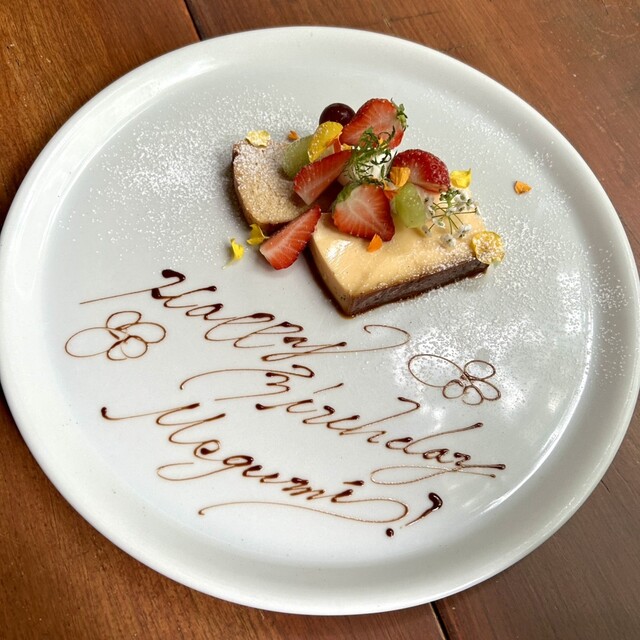 Happy
Birthday
Mogumi!